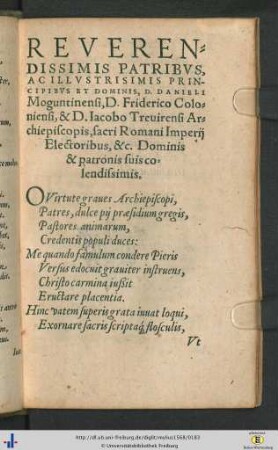 REVEREN-
DISSIMIS PATRIBVS,
AC ILLVSTRISIMIS PRIN-
CIPIBVS ET DOMINIS, D. DANIELI
Moguntinensi, D. Friderico Colo-
niensi, & D. Iacobo Treuirensi Ar-
chiepiscopis, sacri Romani Imperij
Electoribus, &c. Dominis
& patronis suis co-
lendissimis.
O Virtute graues Archiepiscopi,
Patres, dulce pij præsidium gregis,
Pastores animarum,
Credentis populi duces:
Me quando famulum condere Pieris
Versus edocuit grauiter instruens,
Christo carmina iussit
Eructare placentia.
Hinc vatem superis grata iuuat loqui,
Exornare sacris scriptaq́; flosculis,
Vt
http://dl.ub.uni-freiburg.de/diglit/melius1568/0183
© Universitätsbibliothek Freiburg